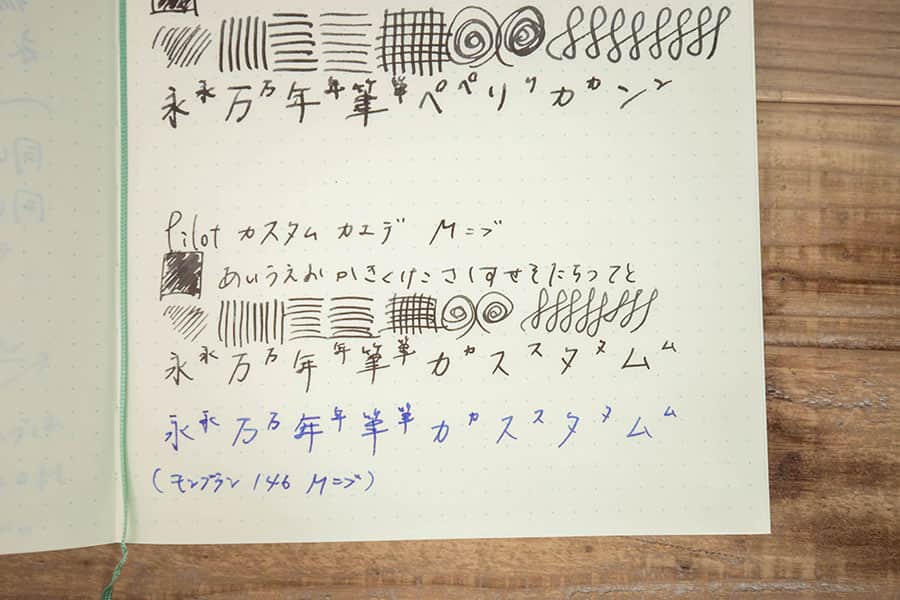 永永万万年年筆筆ペペリリカカンン
Pilot カスタム カエデ Mニブ
あいうえお かきくけこ さしすせそ たちつてと
永永万万年年筆筆カカススタタムム
永永万万年年筆筆カカススタタムム
(モンブラン 146 Mニブ)